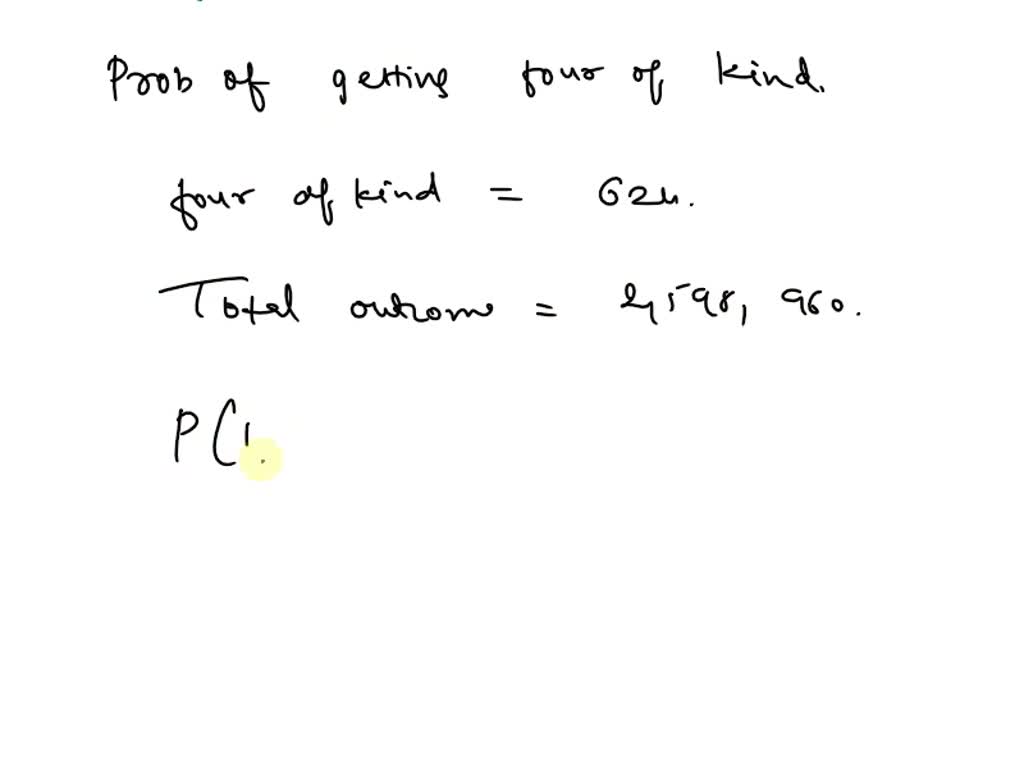 Prob of getting four of kind.
four of kind = 624.
Total outcome = 2,598,960.
P(